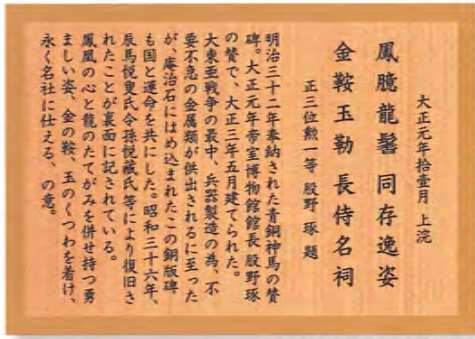 大正元年拾壹月 上浣
鳳臆龍鬐 同存逸姿
金鞍玉勒 長侍名祠
正三位勲一等 股野 琢 題
明治三十二年奉納された青銅神馬の賛
碑。大正元年帝室博物館館長股野琢
の賛で、大正三年五月建てられた。
大東亜戦争の最中、兵器製造の為、不
要不急の金属類が供出されるに至った
が、庵治石にはめ込まれたこの銅版碑
も国と運命を共にした。昭和三十六年、
辰馬悦叟氏令孫悦蔵氏等により復旧さ
れたことが裏面に記されている。
鳳凰の心と龍のたてがみを併せ持つ勇
ましい姿、金の鞍、玉のくつわを着け、
永く名社に仕える、の意。